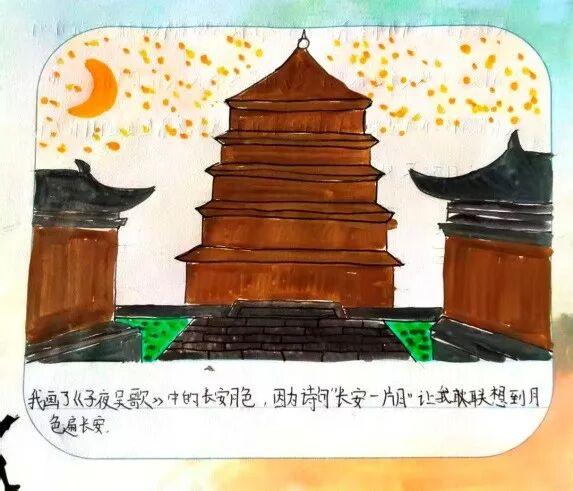 我画了《子夜吴歌》中的长安月色，因为诗句“长安一片月”让我联想到月
色遍长安.